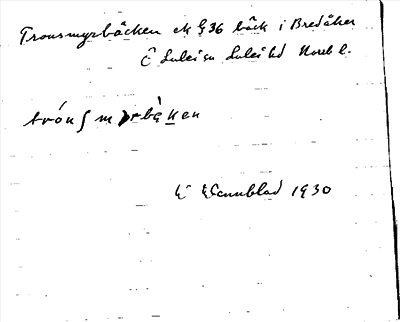 Tronsmyrbäcken ek G 36 bäck i Bredåker
Ö Luleå sn Luleå hd Norrb l.
trón ʃ myrbäken
E Wennblad 1930